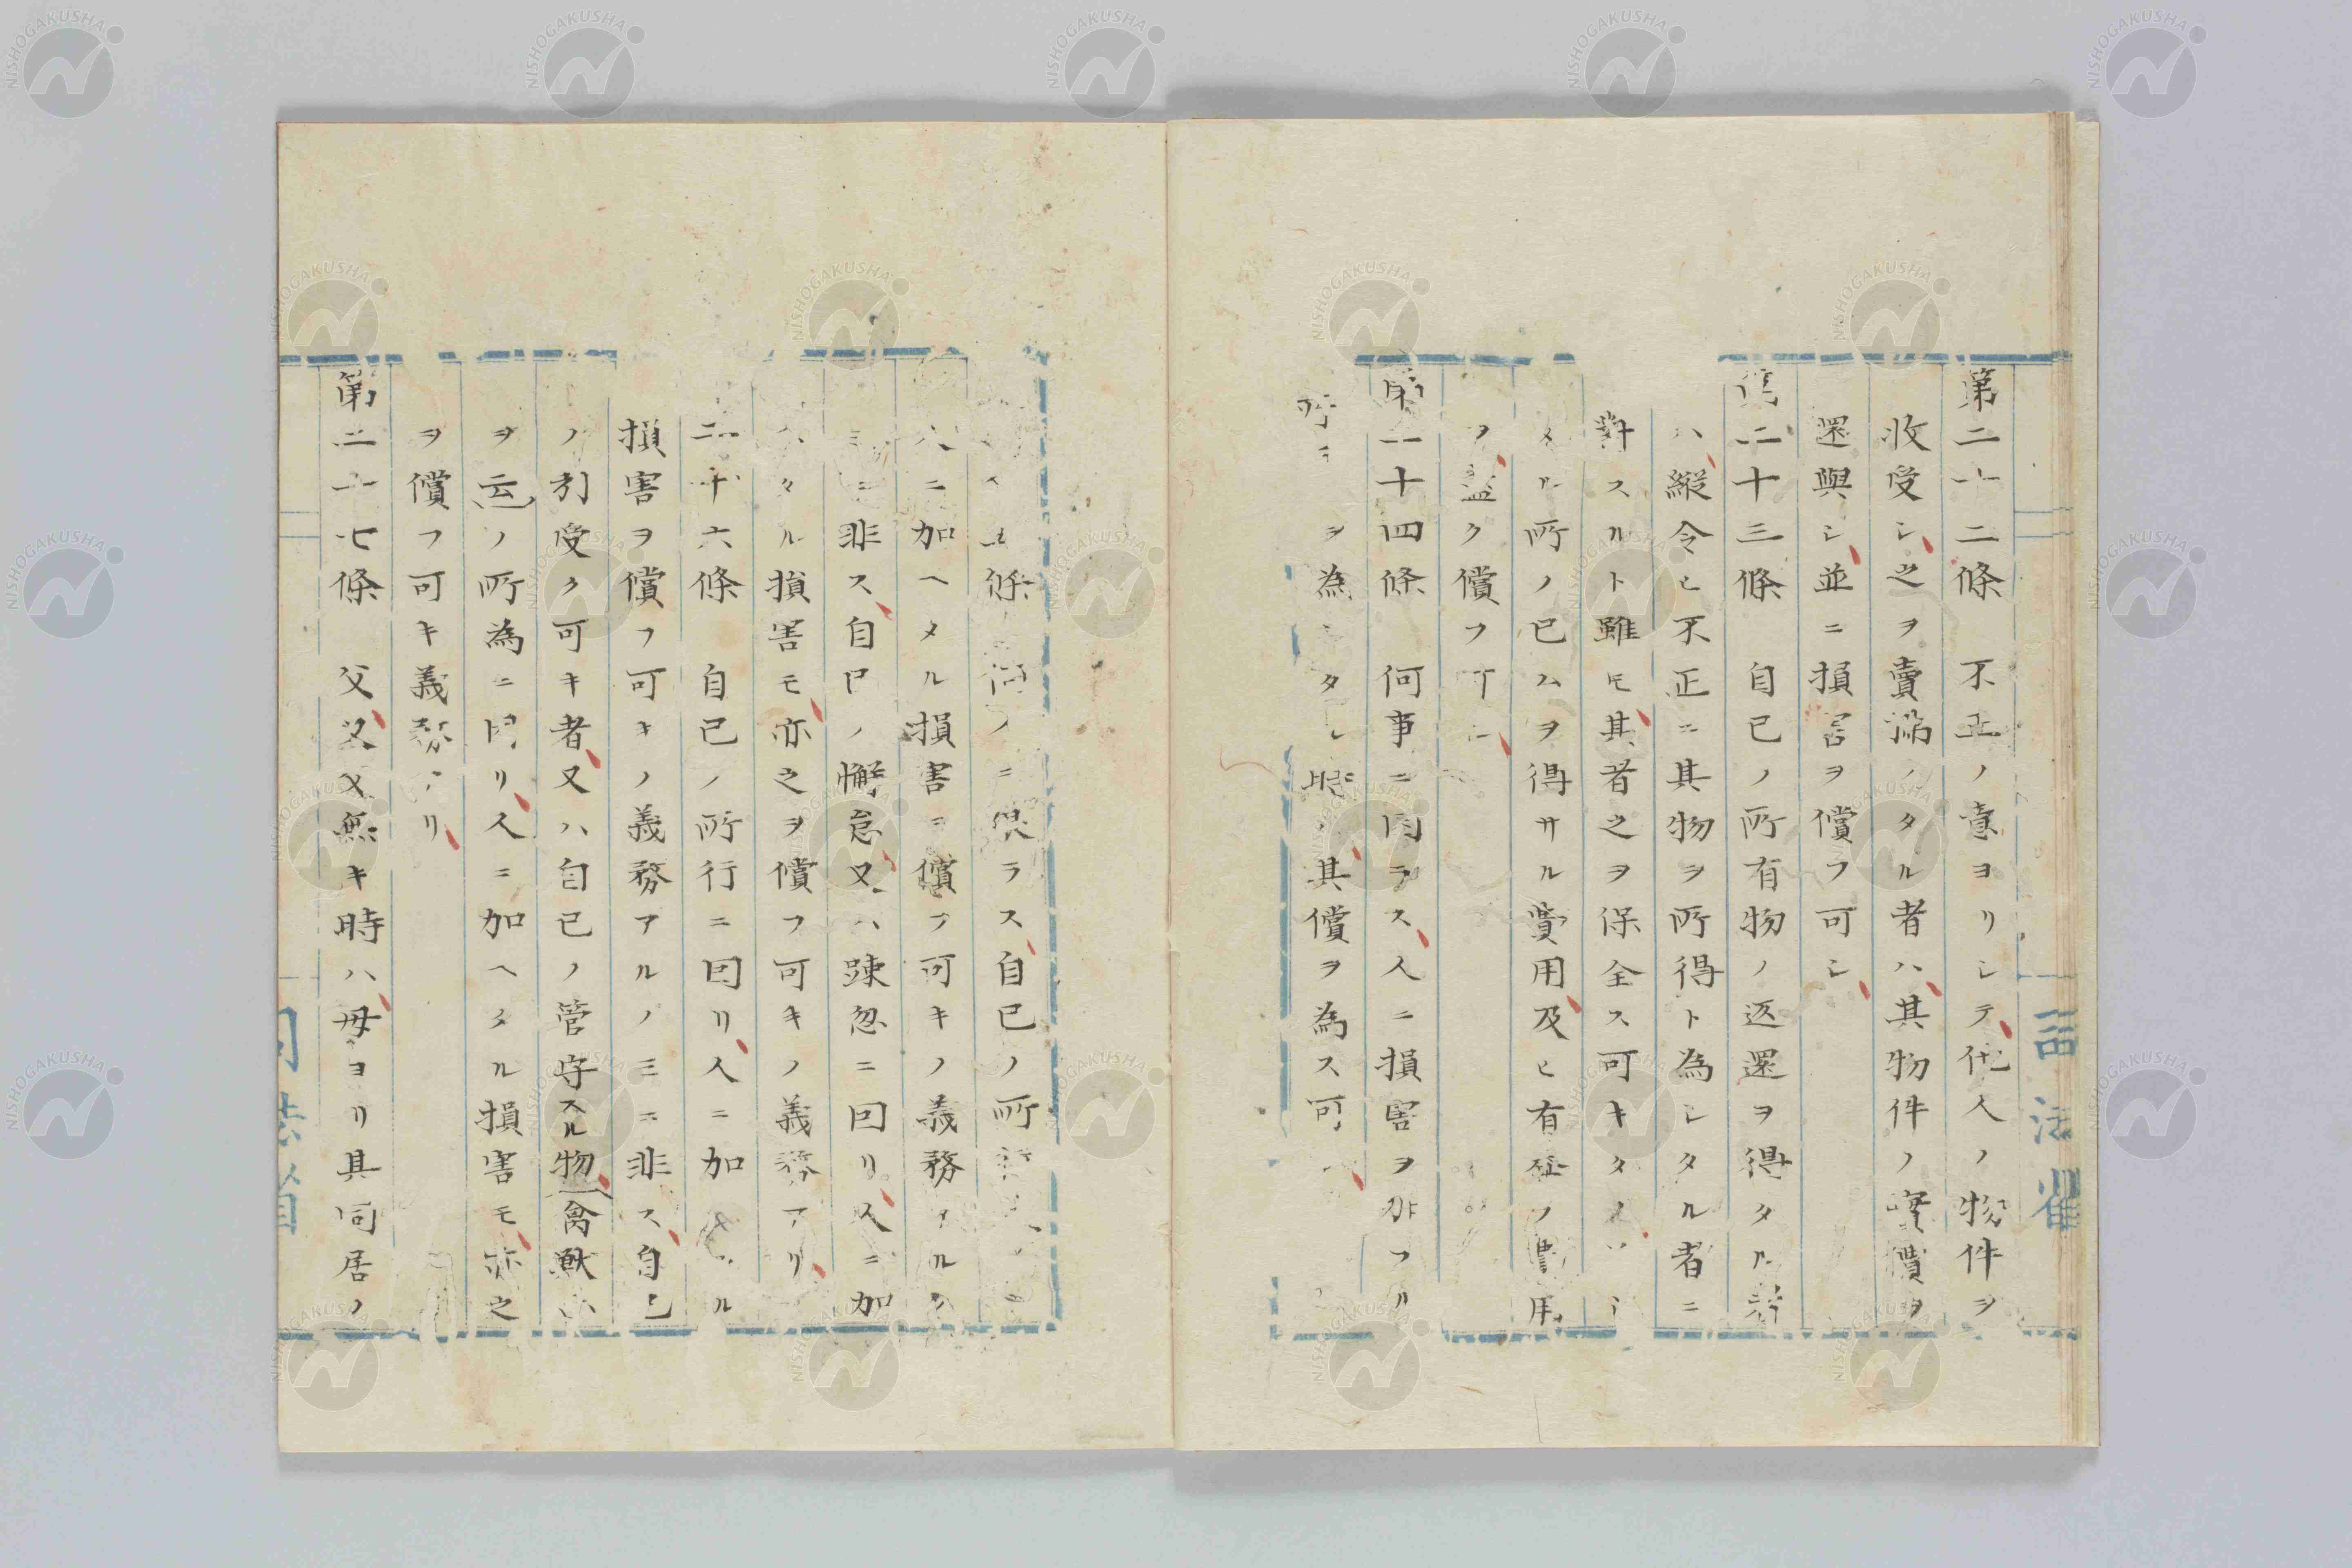 第二十二條　不正ノ意ヨリシテ他人ノ物件ヲ
收受シ之ヲ賣拂ノタル者ハ其物件ノ實價ヲ
還與シ並ニ損害ヲ償フ可シ
第二十三條　自已ノ所有物ノ返還ヲ得タル
ハ縱令ヒ不正ニ其物ヲ所得ト為シタル者ニ
對スルト雖モ其者之ヲ保全ス可キタメ
ル所ノ已ムヲ得サル費用及ヒ有益ノ費用
ヲ盡ク償フ可シ
第二十四條　何事ニ因ラス人ニ損害ヲ加フル
所ヲ為シタル時ハ其償ヲ為ス可
五條　何ノニ限ラス自已ノ所
人ニ加ヘタル損害ヲ償フ可キノ義務アルノ
ミニ非ス自已ノ懈怠又ハ踈忽ニ因リ人ニ加
ヘタル損害モ亦之ヲ償フ可キノ義務アリ
二十六條　自已ノ所行ニ因リ人ニ加ル
損害ヲ償フ可キノ義務アルノミニ非ス自已
ノ引受ク可キ者又ハ自已ノ管守スル物禽獸
ヲ云ノ所為ニ因リ人ニ加ヘタル損害モ亦之
ヲ償フ可キ義務アリ
第二十七條　父又父無キ時ハ母ヨリ其同居ノ
司法省
司法省
NISHOGAKUSHA